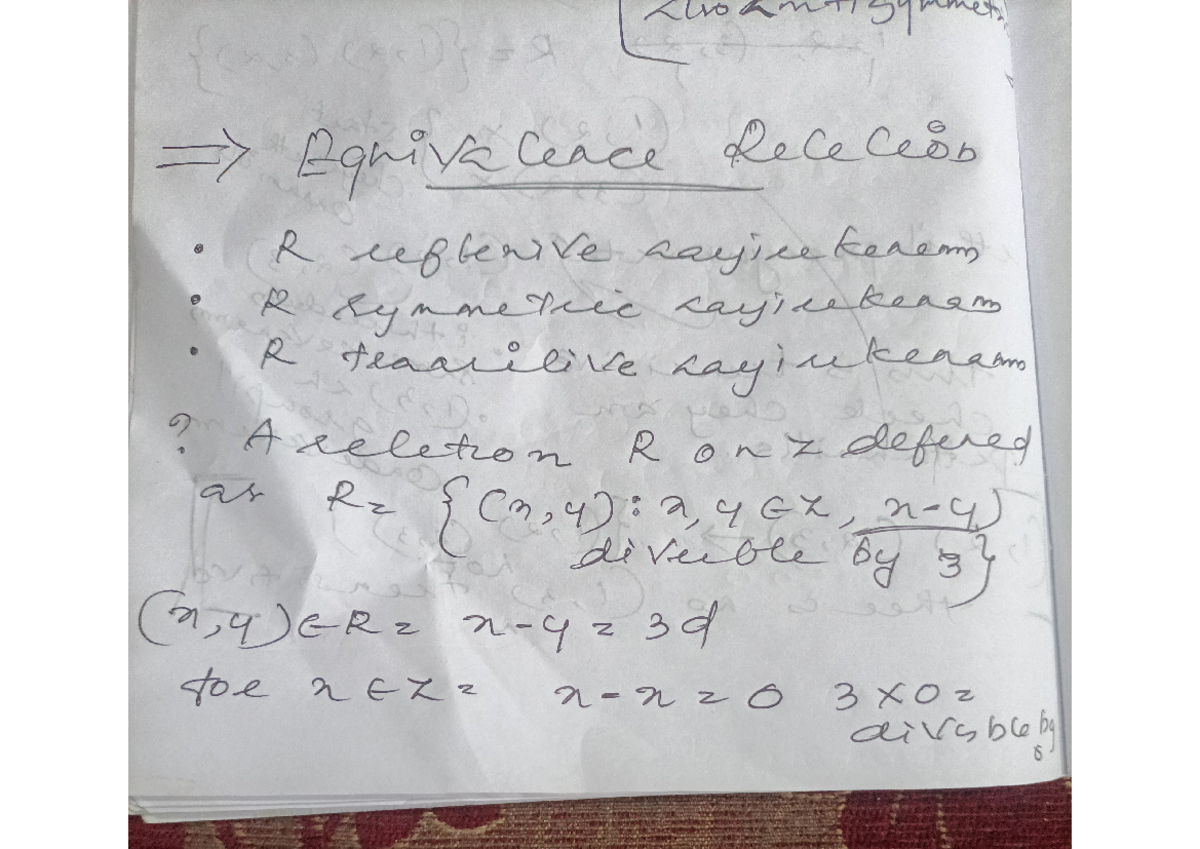 also Anti symmet
⇒ Equivalence Relation
• R reflexive aayirikkanam
• R symmetric aayirikkanam
• R transitive aayirikkanam
? A reletion R on Z defened
as R = {(x, y) : x, y ∈ Z, x-y
divisible by 3}
(x, y) ∈ R = x - y = 3d
for x ∈ Z = x - x = 0 3 × 0 =
divsble by